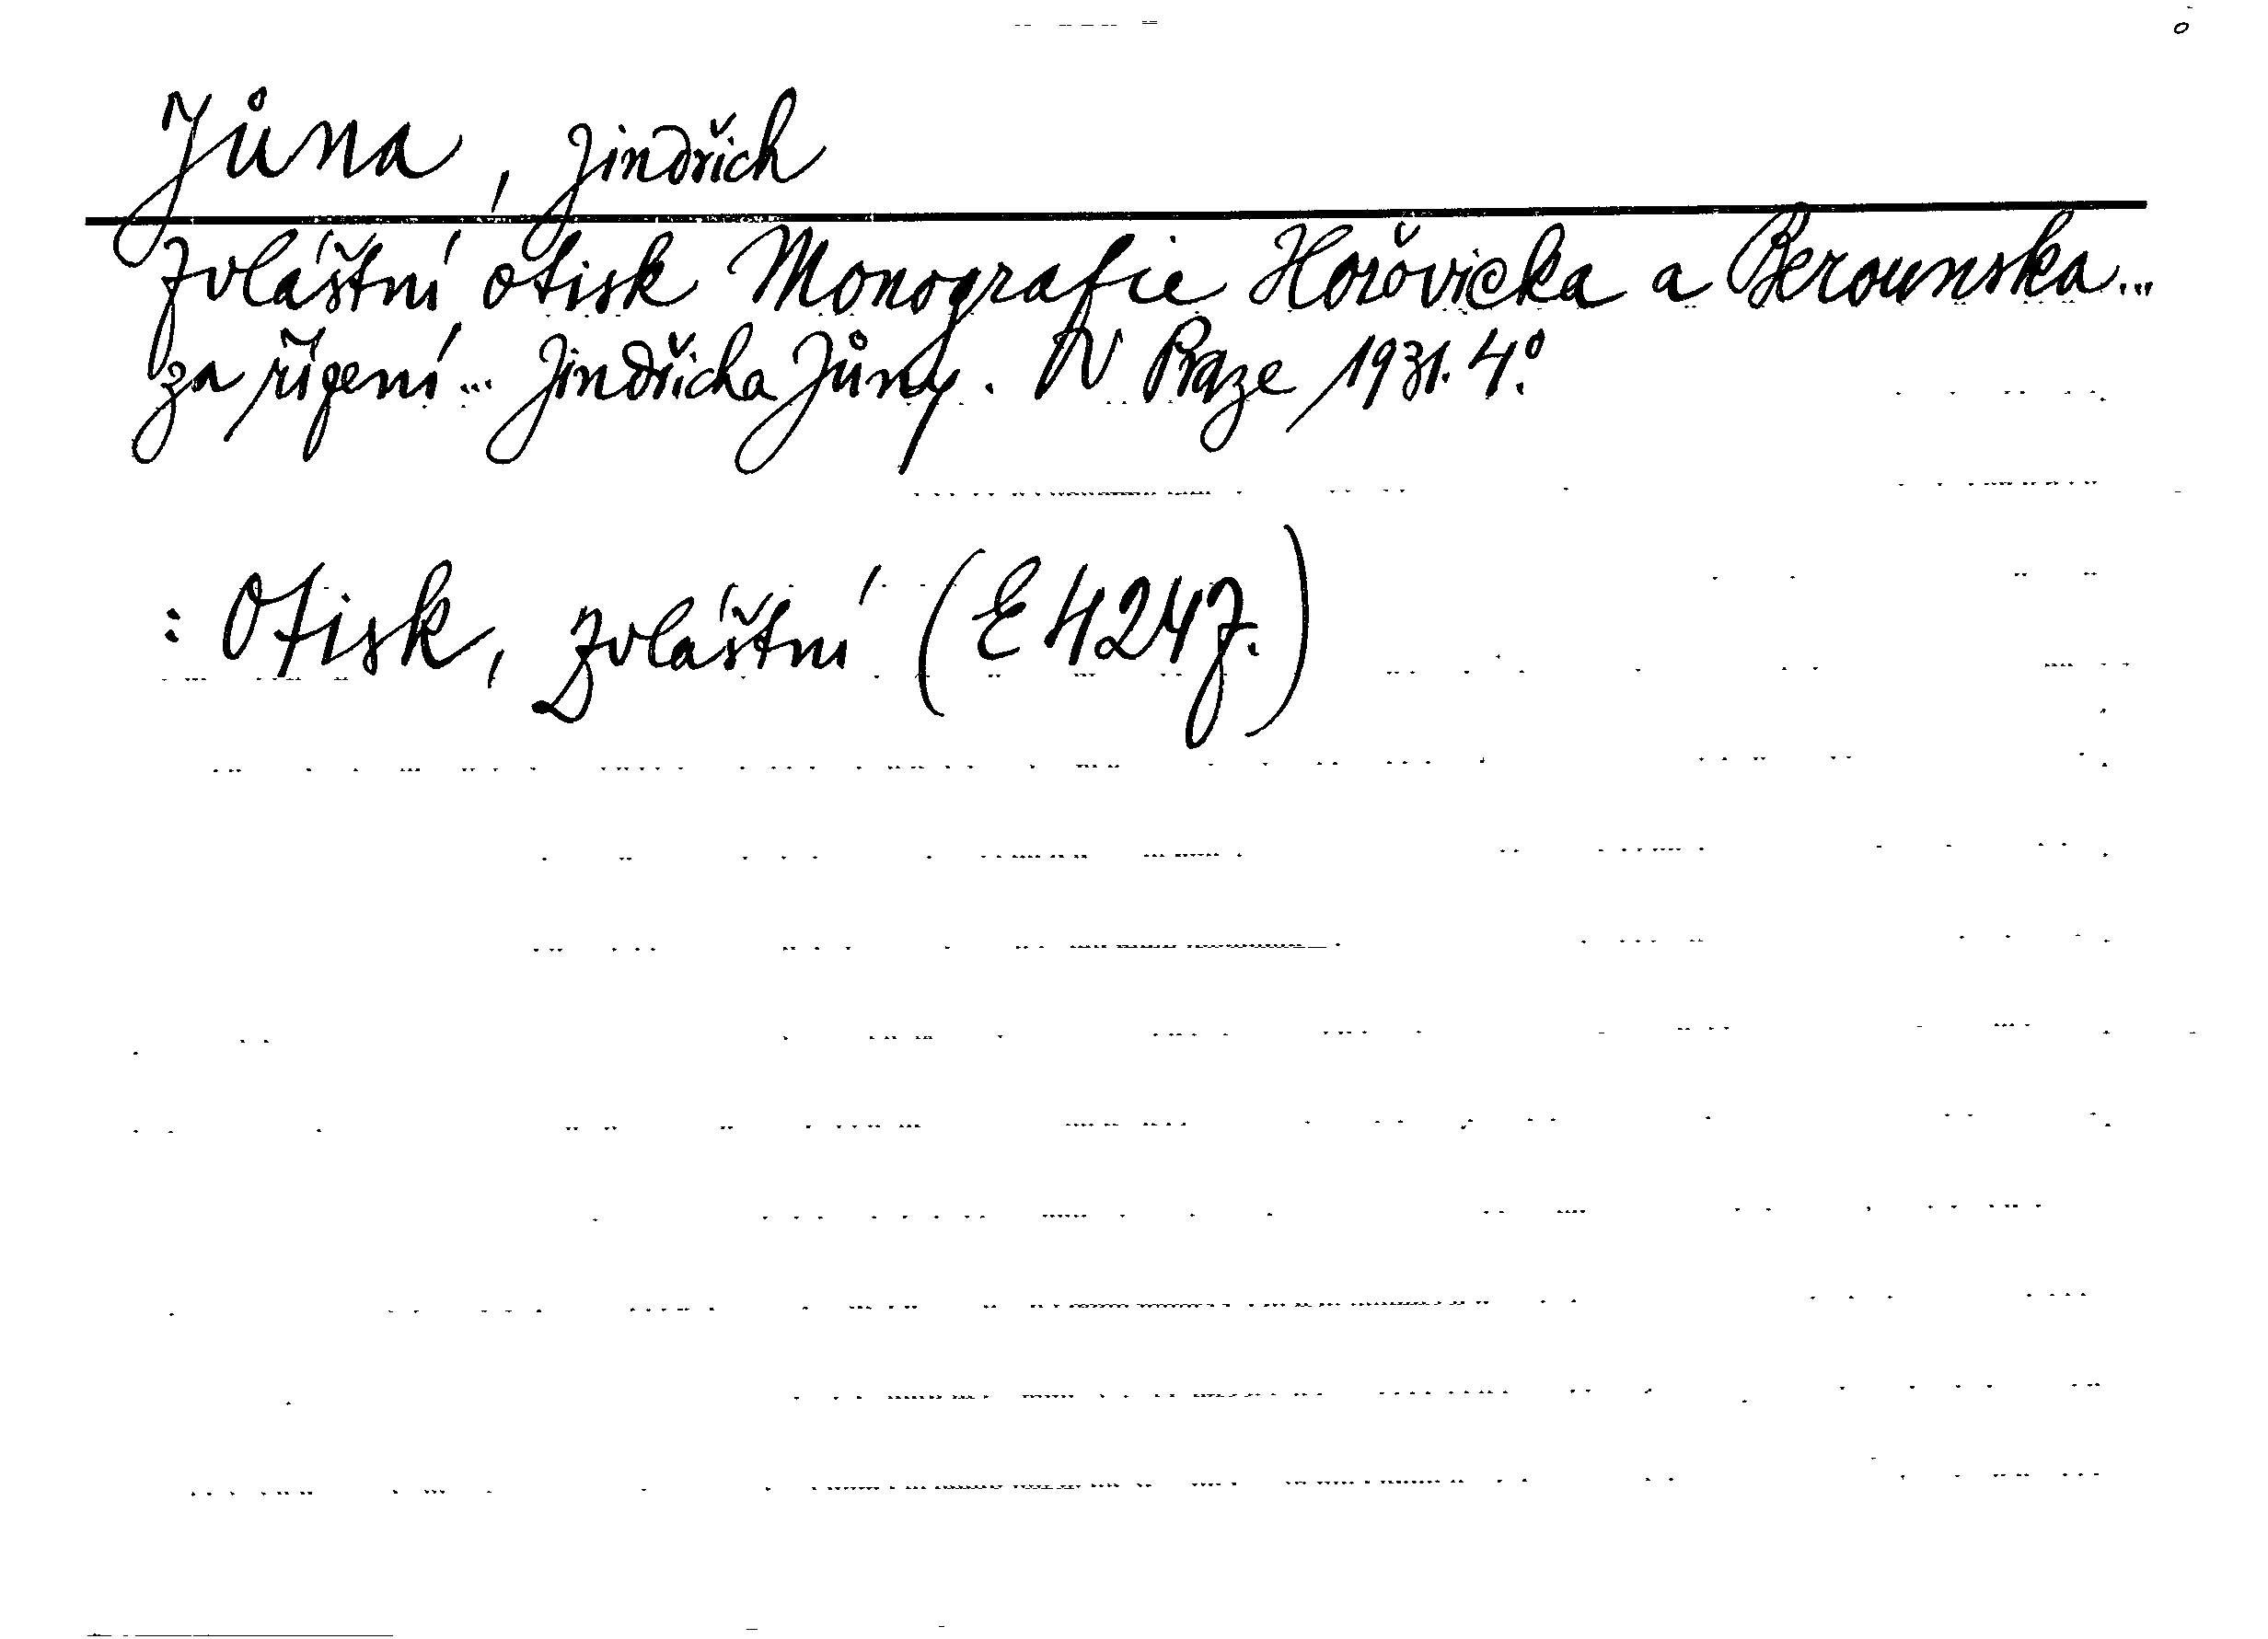 Jůna, Jindřich
Zvláštní otisk Monografie Hořovicka a Berounska...
za řízení... Jindřicha Jůny. V Praze 1931. 4°.
: Otisk, zvláštní (E 4247.)